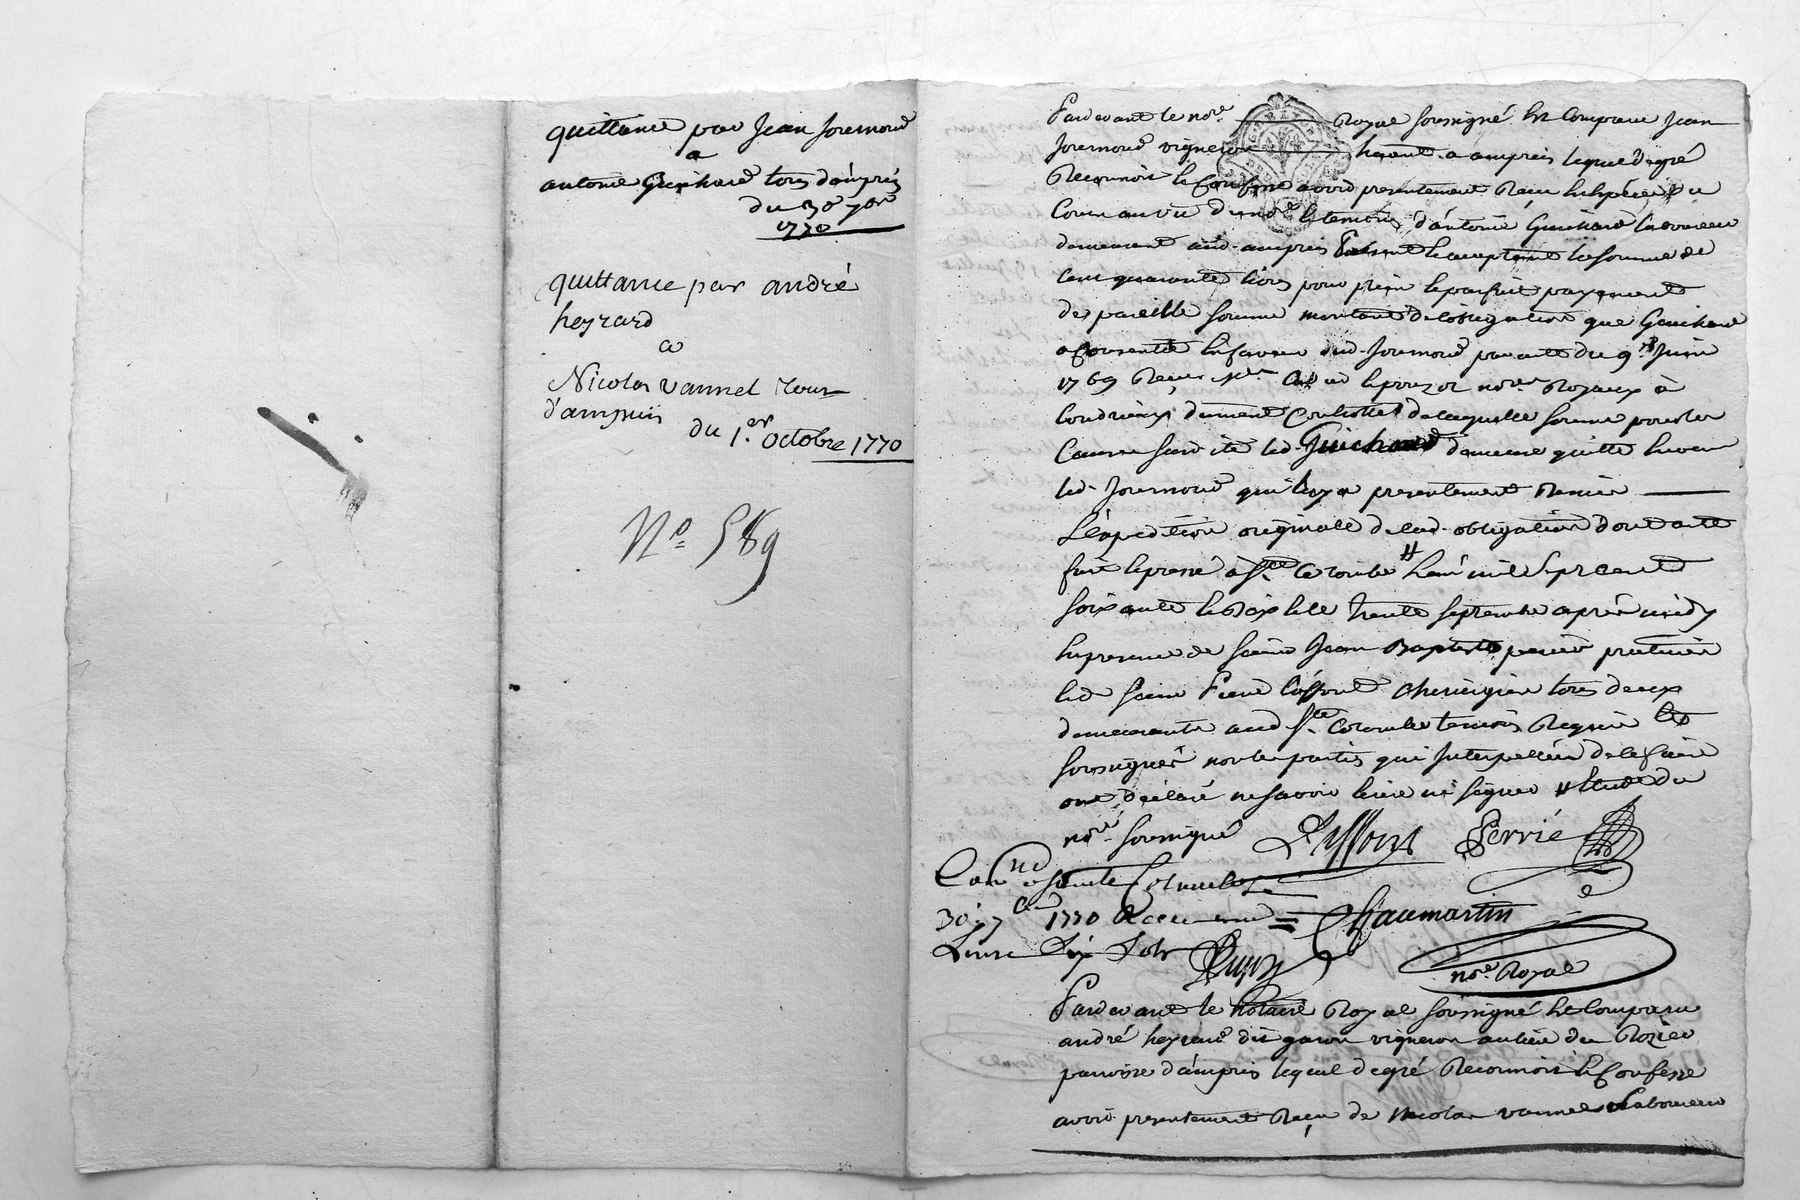 quittance par Jean Journoud
a
antoine Guichard tous d'ampuis
du 30e 7bre
1770
quittance par andré
heyrard
a
Nicolas vannel tous
d'ampuis
du 1.er octobre 1770
No 589
Pardevant le nore Royal soussigné est Comparu Jean
Journoud vigneron hant a ampuis lequel de gré
Reconnoit et Confesse avoir presentement Reçu en espèces du
Cours au vu du nore et temoins d'antoine Guichard laboureur
demeurant aud. ampuis present et acceptant la somme de
Cent quarante livres pour plein et parfait payement
de pareille somme montant de l'obligation que Guichard
a Consentie en faveur dud. Journoud par acte du 9e Juin
1769 Reçu nores Royaux à
Condrieux dument Controllé de laquelle somme pour les
Causes sus dite led. Guichard demeure quitte envers
led. Journoud qui luy a presentement Remis
L'expedition originale de lad. obligation dont acte
fait et passé à Ste Colombe # l'an mil sept cent
soixante et dix et le trente septembre après midy
en presence de sieur Jean Baptiste perrié praticien
et de sieur Pierre Lassont Chirurgien tous deux
demeurants aud. Ste Colombe temoins Requis et
soussignés non les parties qui Interpellées de le faire
ont déclaré ne savoir ecrire ni signer # Etude du
nore soussigné Lassont Perrié
Conlé a sainte Colombe le
30e 7bre 1770 Reçu une = Chaumartin
Livre Dix sols nore Royal
Pardevant le Notaire Royal soussigné est Comparu
andré heyrard dit garon vigneron au lieu du Rozier
parroisse d'ampuis lequel de gré Reconnoit et Confesse
avoir presentement Reçu de Nicolas vannel Laboureur